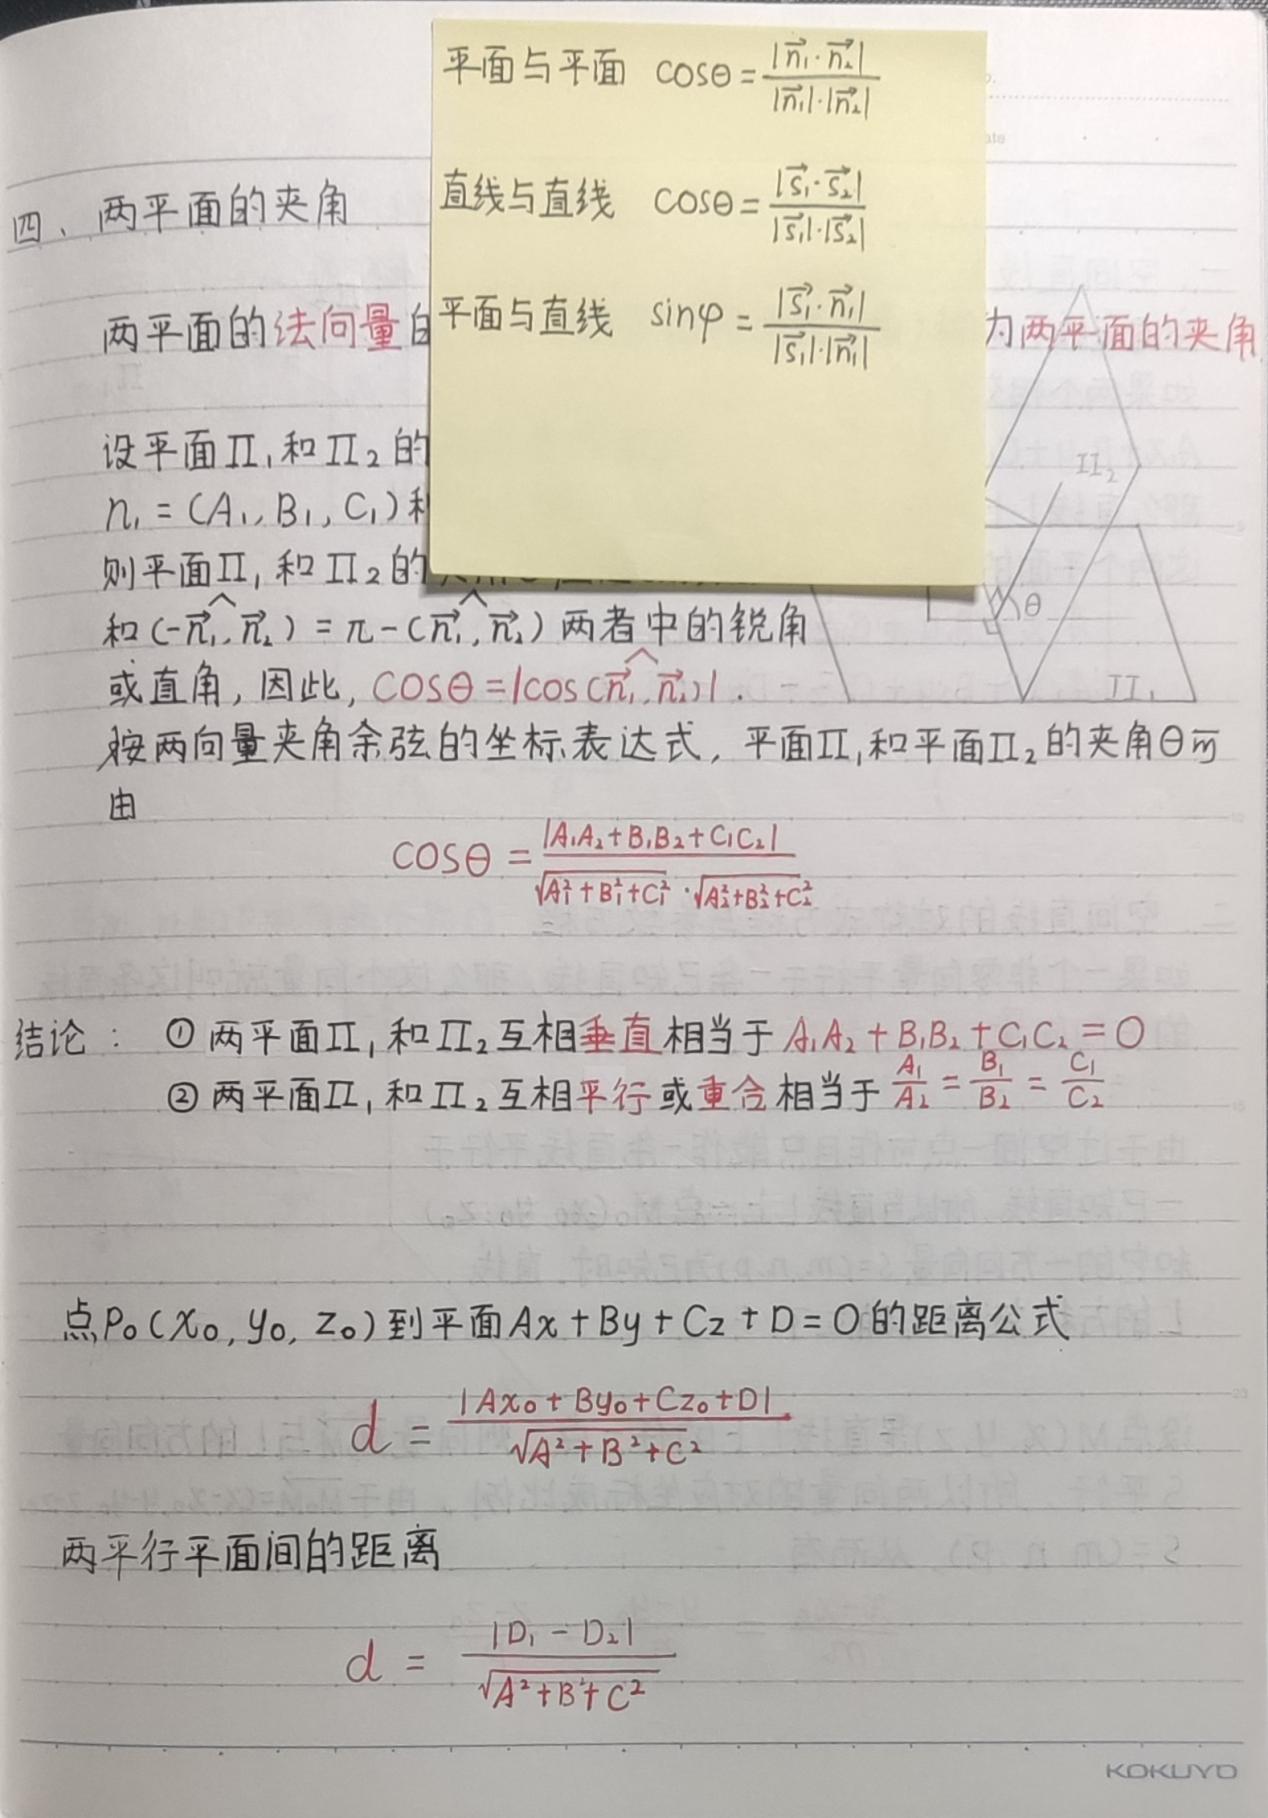 平面与平面 cosθ = |n₁⃗·n₂⃗| / |n₁⃗|·|n₂⃗|
直线与直线 cosθ = |s₁⃗·s₂⃗| / |s₁⃗|·|s₂⃗|
平面与直线 sinφ = |s₁⃗·n₁⃗| / |s₁⃗|·|n₁⃗|
四、两平面的夹角
两平面的法向量 为两平面的夹角
设平面Π₁和Π₂的
n₁ = (A₁, B₁, C₁)
则平面Π₁和Π₂的
和(-n₁⃗^,n₂⃗) = π - (n₁⃗^,n₂⃗) 两者中的锐角
或直角, 因此, cosθ = |cos(n₁⃗^,n₂⃗)|.
按两向量夹角余弦的坐标表达式, 平面Π₁和平面Π₂的夹角θ可
由
cosθ = |A₁A₂ + B₁B₂ + C₁C₂| / √(A₁²+B₁²+C₁²)·√(A₂²+B₂²+C₂²)
结论: ① 两平面Π₁和Π₂互相垂直相当于 A₁A₂ + B₁B₂ + C₁C₂ = 0
② 两平面Π₁和Π₂互相平行或重合相当于 A₁/A₂ = B₁/B₂ = C₁/C₂
点P₀(x₀, y₀, z₀)到平面Ax + By + Cz + D = 0的距离公式
d = |Ax₀ + By₀ + Cz₀ + D| / √(A² + B² + C²)
两平行平面间的距离
d = |D₁ - D₂| / √(A² + B² + C²)
Π₂
θ
Π₁
KOKUYO